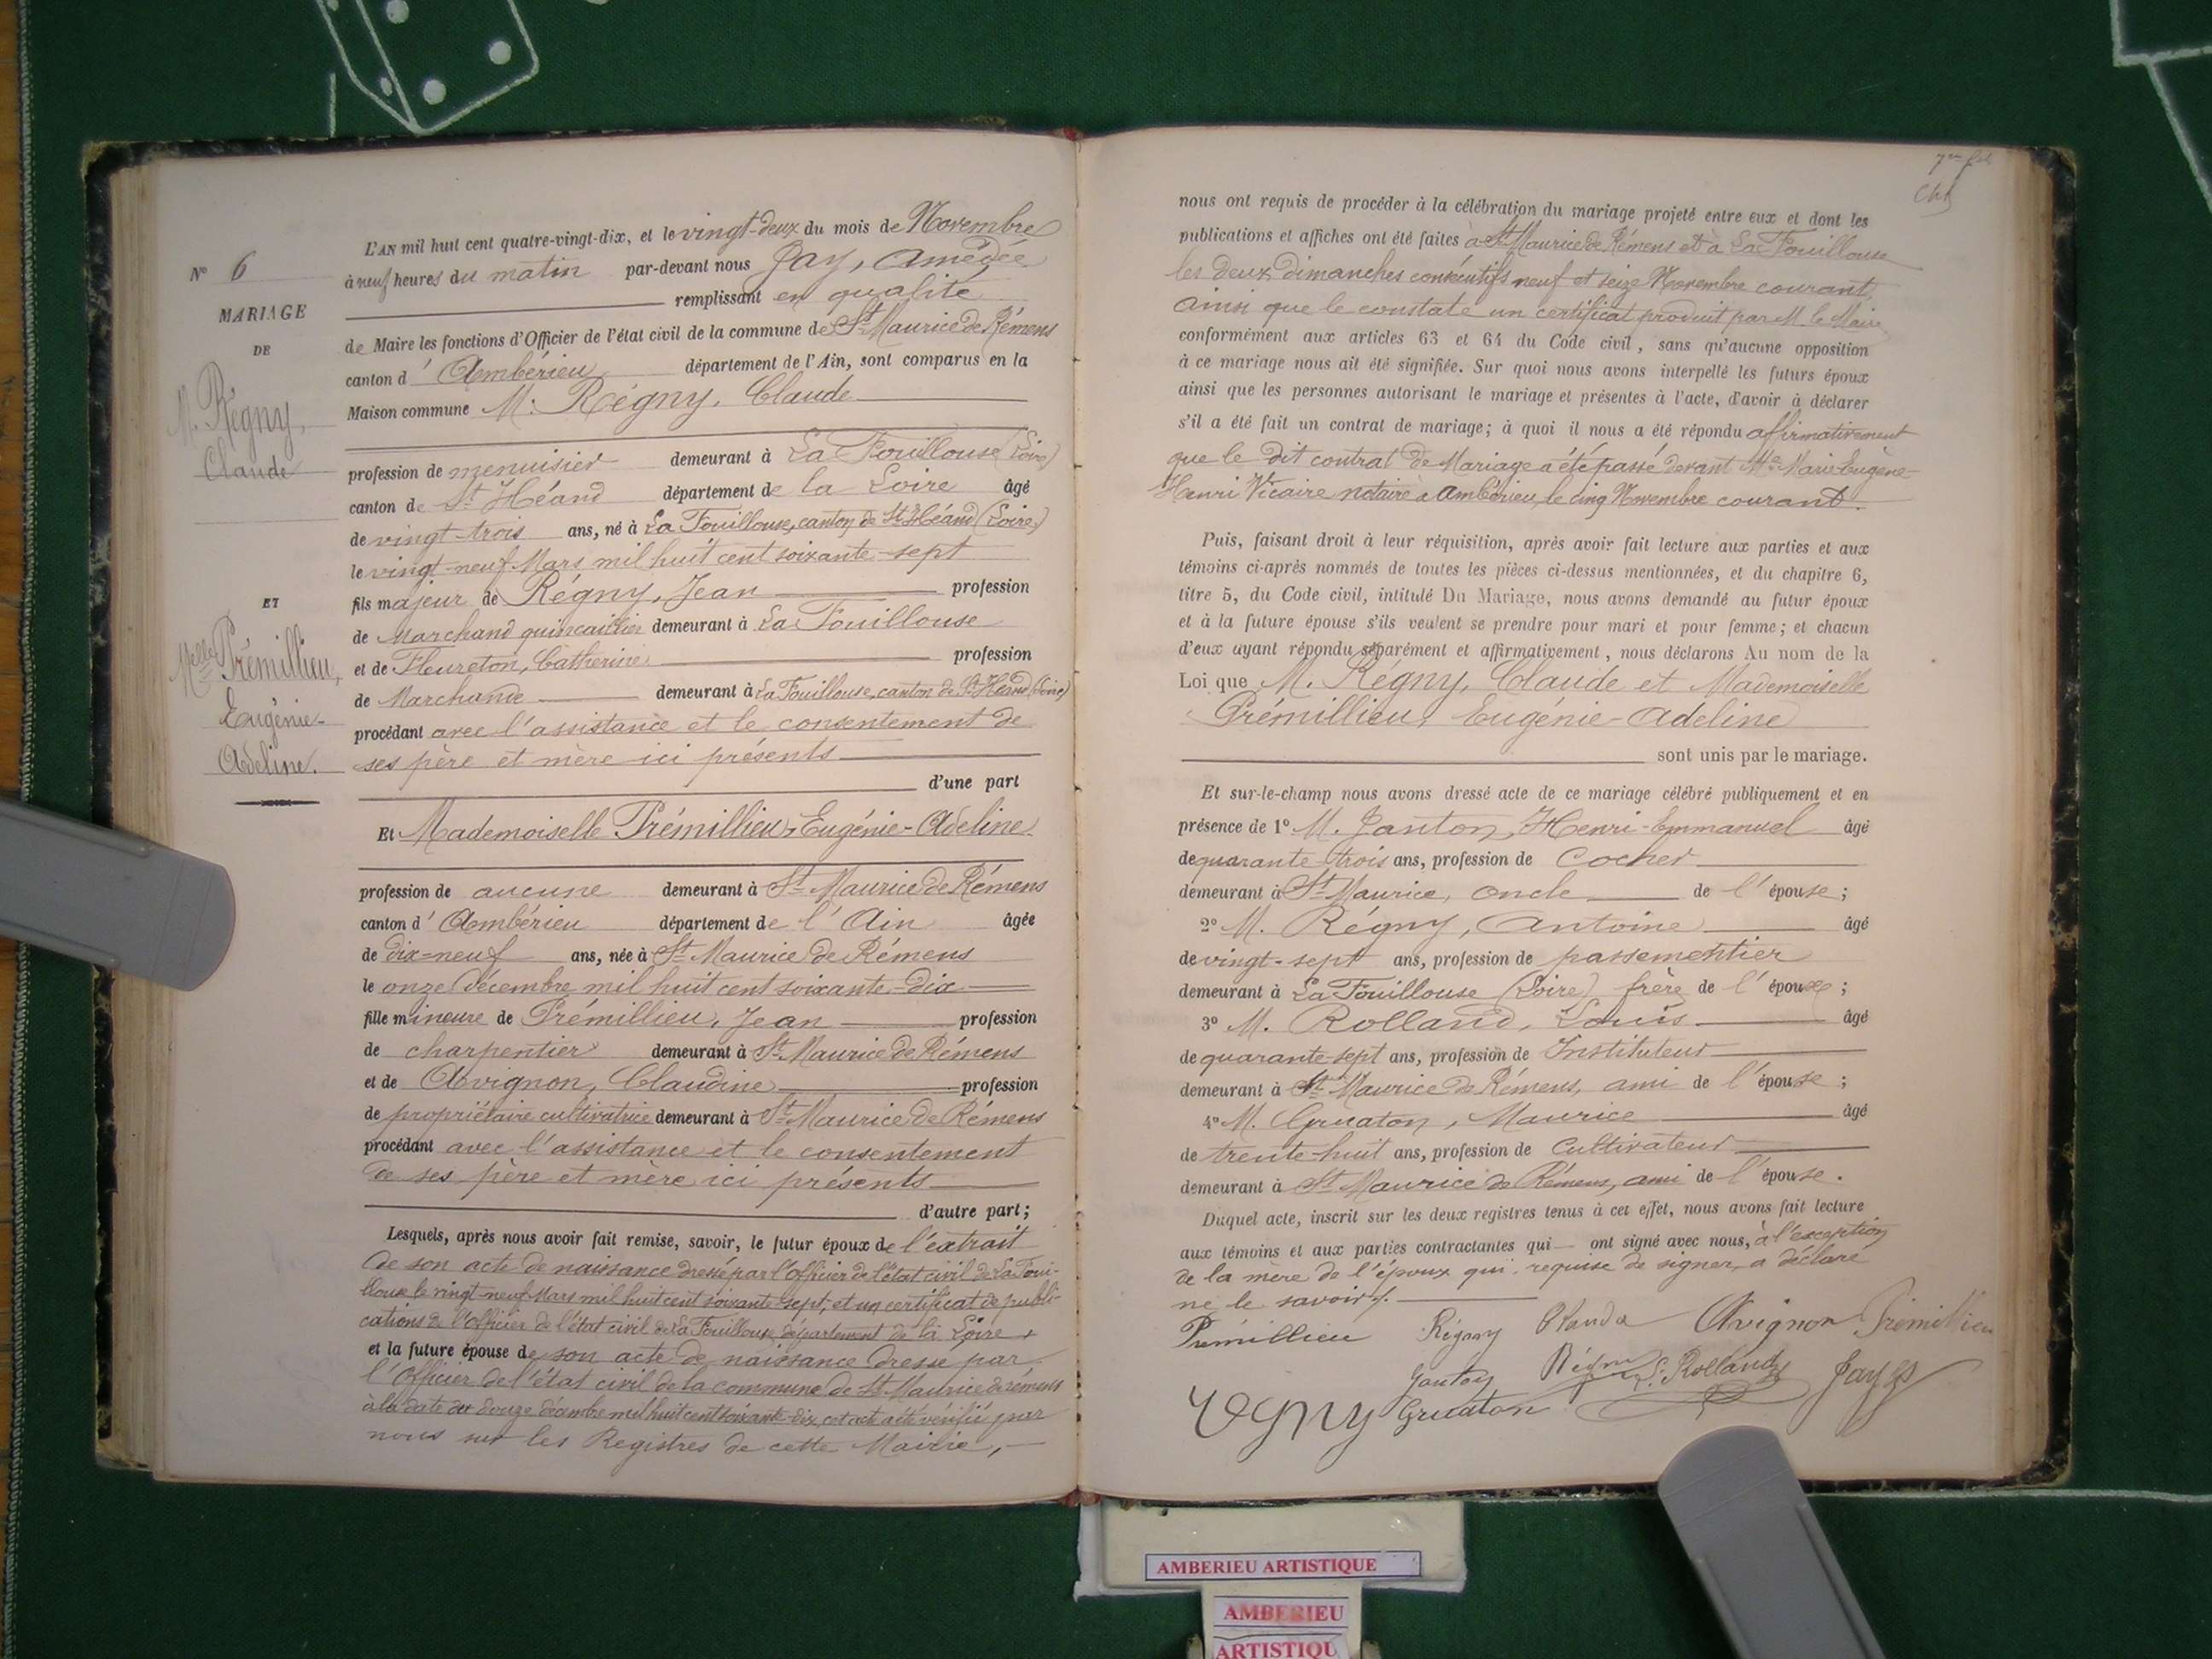 N° 6
MARIAGE
DE
M. Régny,
Claude
ET
Melle Prémillieu,
Eugénie-
Adeline.
L'AN mil huit cent quatre-vingt-dix, et le vingt-deux du mois de Novembre
à neuf heures du matin par-devant nous Jay, Amédée
remplissant en qualité
de Maire les fonctions d'Officier de l'état civil de la commune de St Maurice de Rémens
canton d' Ambérieu département de l'Ain, sont comparus en la
Maison commune M. Régny, Claude
profession de menuisier demeurant à La Fouillouse (Loire)
canton de St Héand département de la Loire âgé
de vingt-trois ans, né à La Fouillouse, canton de St Héand (Loire)
le vingt-neuf Mars mil huit cent soixante-sept
fils majeur de Régny, Jean profession
de Marchand quincaillier demeurant à La Fouillouse
et de Fleureton, Catherine profession
de Marchande demeurant à La Fouillouse, canton de St Héand (Loire)
procédant avec l'assistance et le consentement de
ses père et mère ici présents
d'une part
Et Mademoiselle Prémillieu, Eugénie-Adeline
profession de aucune demeurant à St Maurice de Rémens
canton d' Ambérieu département de l'Ain âgée
de dix-neuf ans, née à St Maurice de Rémens
le onze décembre mil huit cent soixante-dix
fille mineure de Prémillieu, Jean profession
de charpentier demeurant à St Maurice de Rémens
et de Avignon, Claudine profession
de propriétaire cultivatrice demeurant à St Maurice de Rémens
procédant avec l'assistance et le consentement
de ses père et mère ici présents
d'autre part;
Lesquels, après nous avoir fait remise, savoir, le futur époux de l'extrait
de son acte de naissance dressé par l'officier de l'état civil de La Foui-
llouse le vingt-neuf Mars mil huit cent soixante sept, et un certificat de publi-
cations de l'officier de l'état civil de La Fouillouse, département de la Loire,
et la future épouse de son acte de naissance dressé par
l'Officier de l'état civil de la commune de St Maurice de rémens
à la date du douze décembre mil huit cent soixante dix, cet acte a été vérifié par
nous sur les Registres de cette Mairie,
nous ont requis de procéder à la célébration du mariage projeté entre eux et dont les
publications et affiches ont été faites à St Maurice de Rémens et à La Fouillouse
les deux dimanches consécutifs neuf et seize Novembre courant,
ainsi que le constate un certificat produit par M. le Maire
conformément aux articles 63 et 64 du Code civil, sans qu'aucune opposition
à ce mariage nous ait été signifiée. Sur quoi nous avons interpellé les futurs époux
ainsi que les personnes autorisant le mariage et présentes à l'acte, d'avoir à déclarer
s'il a été fait un contrat de mariage; à quoi il nous a été répondu affirmativement
que le dit contrat de Mariage a été passé devant Me Marie Eugène-
Henri Vicaire notaire à Ambérieu, le cinq Novembre courant.
Puis, faisant droit à leur réquisition, après avoir fait lecture aux parties et aux
témoins ci-après nommés de toutes les pièces ci-dessus mentionnées, et du chapitre 6,
titre 5, du Code civil, intitulé Du Mariage, nous avons demandé au futur époux
et à la future épouse s'ils veulent se prendre pour mari et pour femme; et chacun
d'eux ayant répondu séparément et affirmativement, nous déclarons Au nom de la
Loi que M. Régny, Claude et Mademoiselle
Prémillieu, Eugénie-Adeline
sont unis par le mariage.
Et sur-le-champ nous avons dressé acte de ce mariage célébré publiquement et en
présence de 1° M. Janton, Henri-Emmanuel âgé
de quarante-trois ans, profession de Cocher
demeurant à St Maurice, oncle de l'épouse;
2° M. Régny, Antoine âgé
de vingt-sept ans, profession de passementier
demeurant à La Fouillouse (Loire) frère de l'époux;
3° M. Rolland, Louis âgé
de quarante-sept ans, profession de Instituteur
demeurant à St Maurice de Rémens, ami de l'épouse;
4° M. Gruaton, Maurice âgé
de trente-huit ans, profession de Cultivateur
demeurant à St Maurice de Rémens, ami de l'épouse.
Duquel acte, inscrit sur les deux registres tenus à cet effet, nous avons fait lecture
aux témoins et aux parties contractantes qui ont signé avec nous, à l'exception
de la mère de l'époux qui, requise de signer, a déclaré
ne le savoir.
Prémillieu Régny Avignon Prémillieu
Janton Régny L. Rolland Jay
Regny Gruaton
AMBERIEU ARTISTIQUE
AMBERIEU
ARTISTIQU